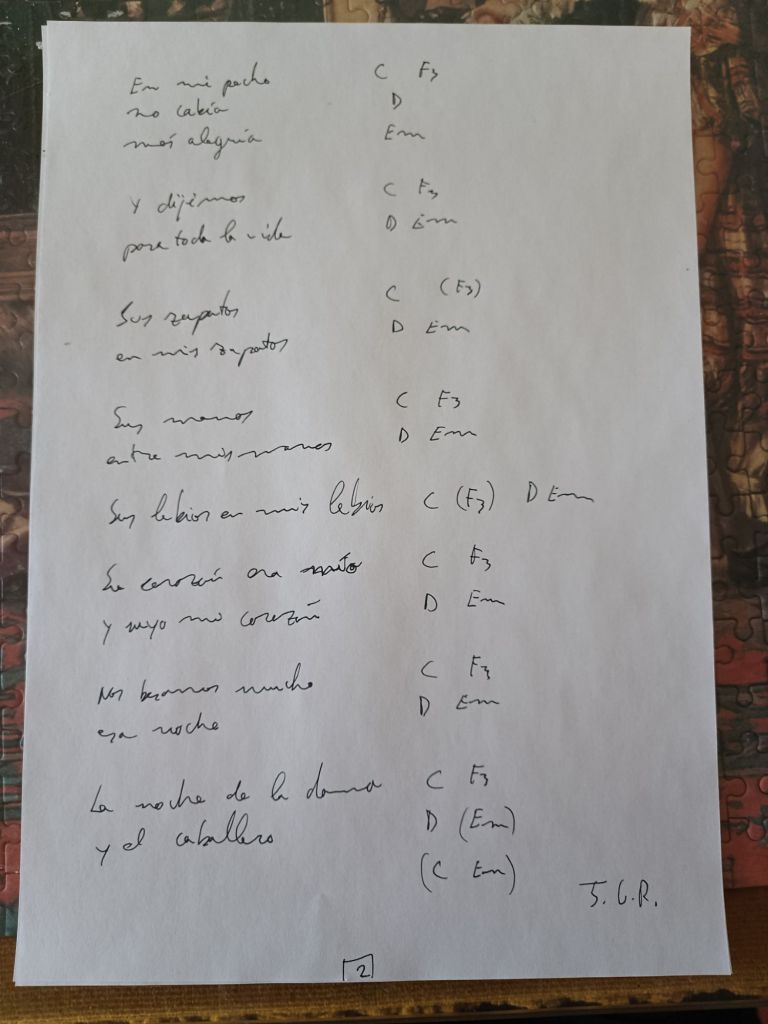 En mi pecho C F3
no cabía D
más alegría Em
Y dijimos C F3
para toda la vida D Em
Sus zapatos C (F3)
en mis zapatos D Em
Sus manos C F3
entre mis manos D Em
Sus labios en mis labios C (F3) D Em
Su corazón era mío C F3
y suyo mi corazón D Em
Nos besamos mucho C F3
esa noche D Em
La noche de la dama C F3
y el caballero D (Em)
(C Em)
J.G.R.
2